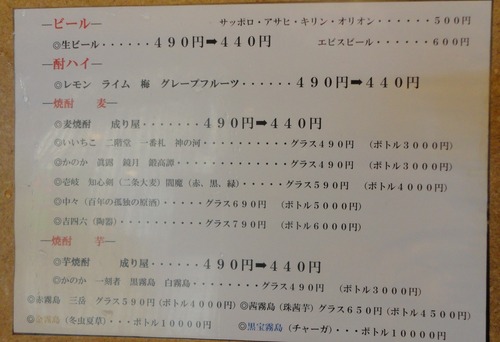 ―ビール―
サッポロ・アサヒ・キリン・オリオン・・・・・・５００円
◎生ビール・・・・・４９０円➡４４０円
エビスビール・・・・・・６００円
―酎ハイ―
◎レモン　ライム　梅　グレープフルーツ・・・・・・４９０円➡４４０円
―焼酎　麦―
◎麦焼酎　成り屋・・・・・・・４９０円➡４４０円
◎いいちこ　二階堂　一番札　神の河・・・・・・・・・・グラス４９０円　（ボトル３０００円）
◎かのか　眞露　鏡月　鍛高譚・・・・・・・・・・・・・・グラス４９０円　（ボトル３０００円）
◎壱岐　知心剣（二条大麦）閻魔（赤、黒、緑）・・・・グラス５９０円　（ボトル４０００円）
◎中々（百年の孤独の原酒）・・・・・・・・グラス６９０円　（ボトル５０００円）
◎吉四六（陶器）・・・・・・・・・・・グラス７９０円　（ボトル６０００円）
―焼酎　芋―
◎芋焼酎　成り屋・・・・・４９０円➡４４０円
◎かのか　一刻者　黒霧島　白霧島・・・・・・・グラス４９０円　（ボトル３０００円）
◎赤霧島　三岳　グラス５９０円（ボトル４０００円）◎茜霧島（珠茜芋）グラス６５０円（ボトル４５００円）
◎金霧島（冬虫夏草）・・・ボトル１００００円　◎黒宝霧島（チャーガ）・・・・ボトル１００００円